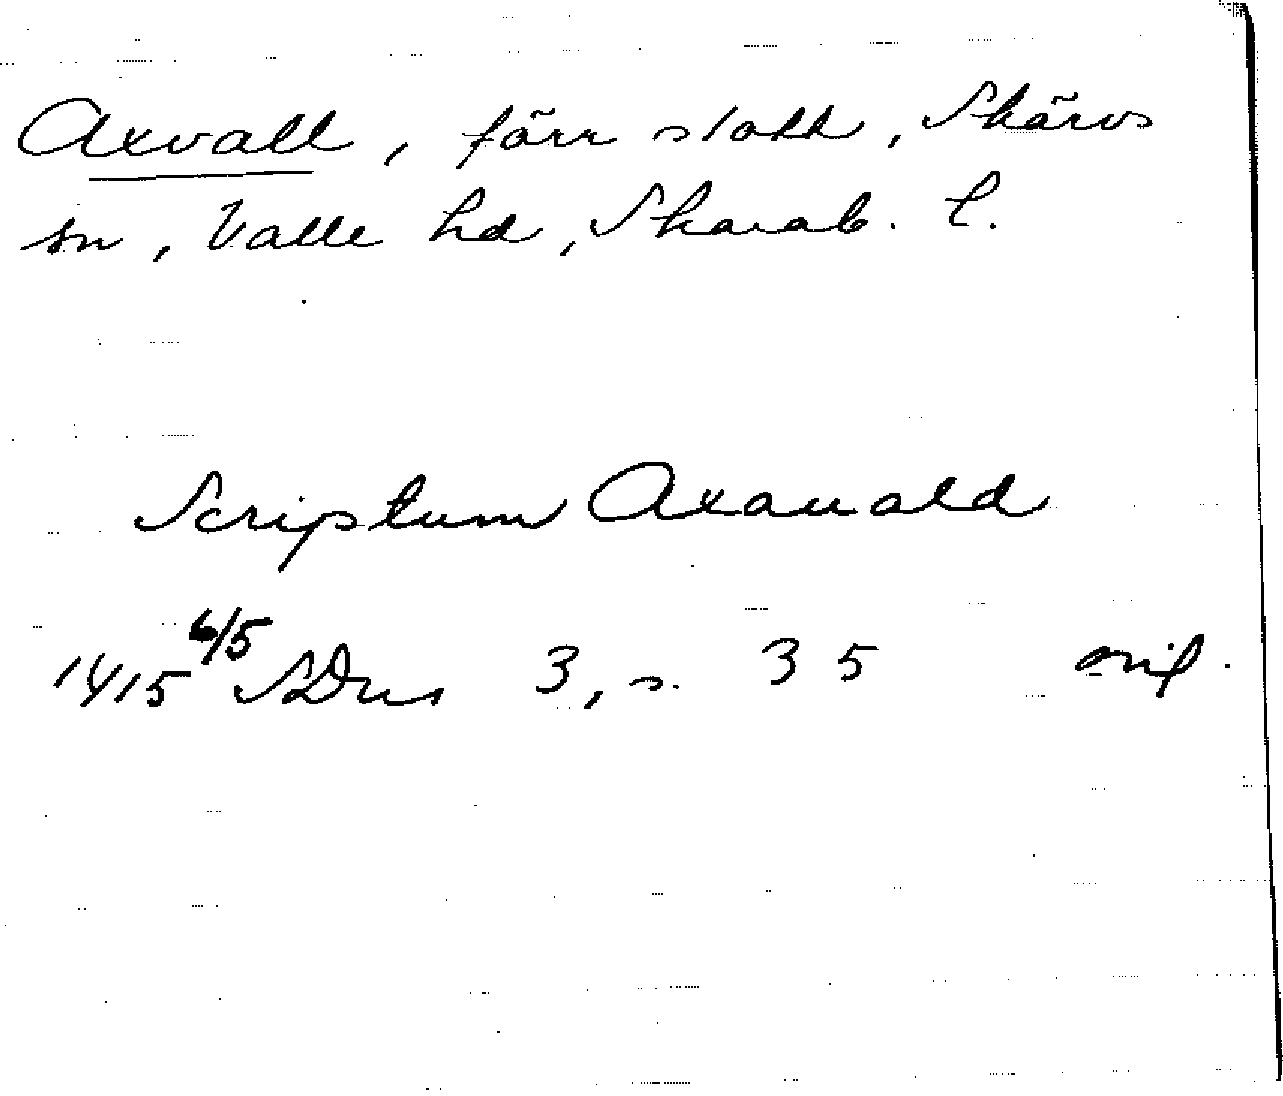 Axvall, förr slott, Skärvs
sn, Valle hd, Skarab. l.
Scriptum Axauald
1415 6/5 SDns 3, s. 35 orig.